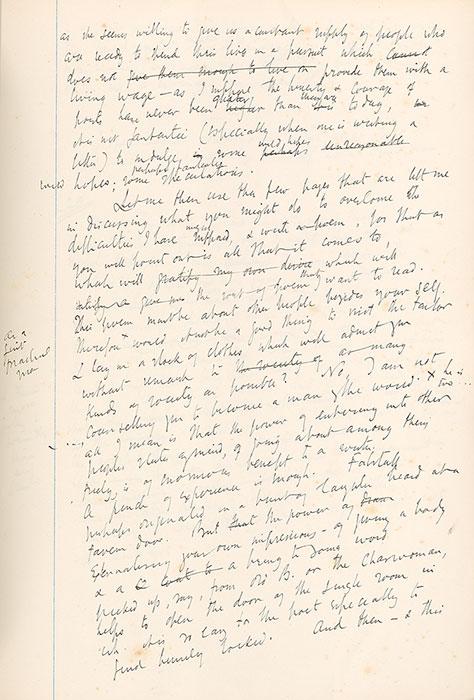 as she seems willing to give us a constant supply of people who
are ready to spend their lives in a pursuit which cannot
does not give them enough to live on provide them with a
living wage — as I suppose the honesty & courage of
poets have never been greater than they are today,
it is not fantastic (especially when one is writing a
letter) to indulge in some perhaps unreasonable
hopes; some perhaps fantastic speculations.
Let me then use the few pages that are left me
in discussing what you might do to overcome the
difficulties I have, & write a poem, for that as
you will point out is all that it comes to,
which will gratify my own desire which will
give me the sort of poem that I want to read.
This poem must be about other people besides your self.
Therefore would it not be a good thing to visit the tailor
as a
first
practical
& lay in a stock of clothes which will admit you
without remark to as many
kinds of society as possible? No, I am not
counselling you to become a man of the world. he is
all I mean is that the power of entering into other
peoples states of mind, of going about among them
freely is of enormous benefit to a writer.
A of experience is enough. Falstaff
perhaps originated in a burst of laughter heard at a
tavern door. But the power of
externalising your own impressions — of giving a body
& a to a being to some word
picked up, say, from Old B. or the Charwoman,
helps to open the door of the single room in
wh. it is so easy for the poet especially to
find himself locked. And then — & this